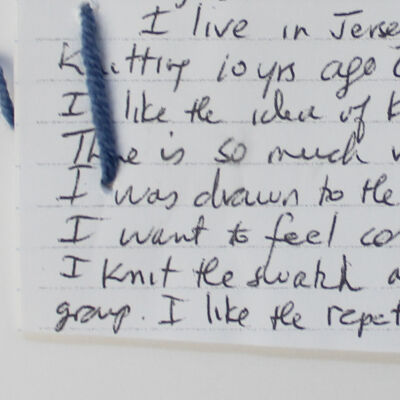 I live in Jerse
Knitting 10 yrs ago
I like the idea of k
There is so much
I was drawn to the
I want to feel co
I Knit the swatch a
group. I like the repet